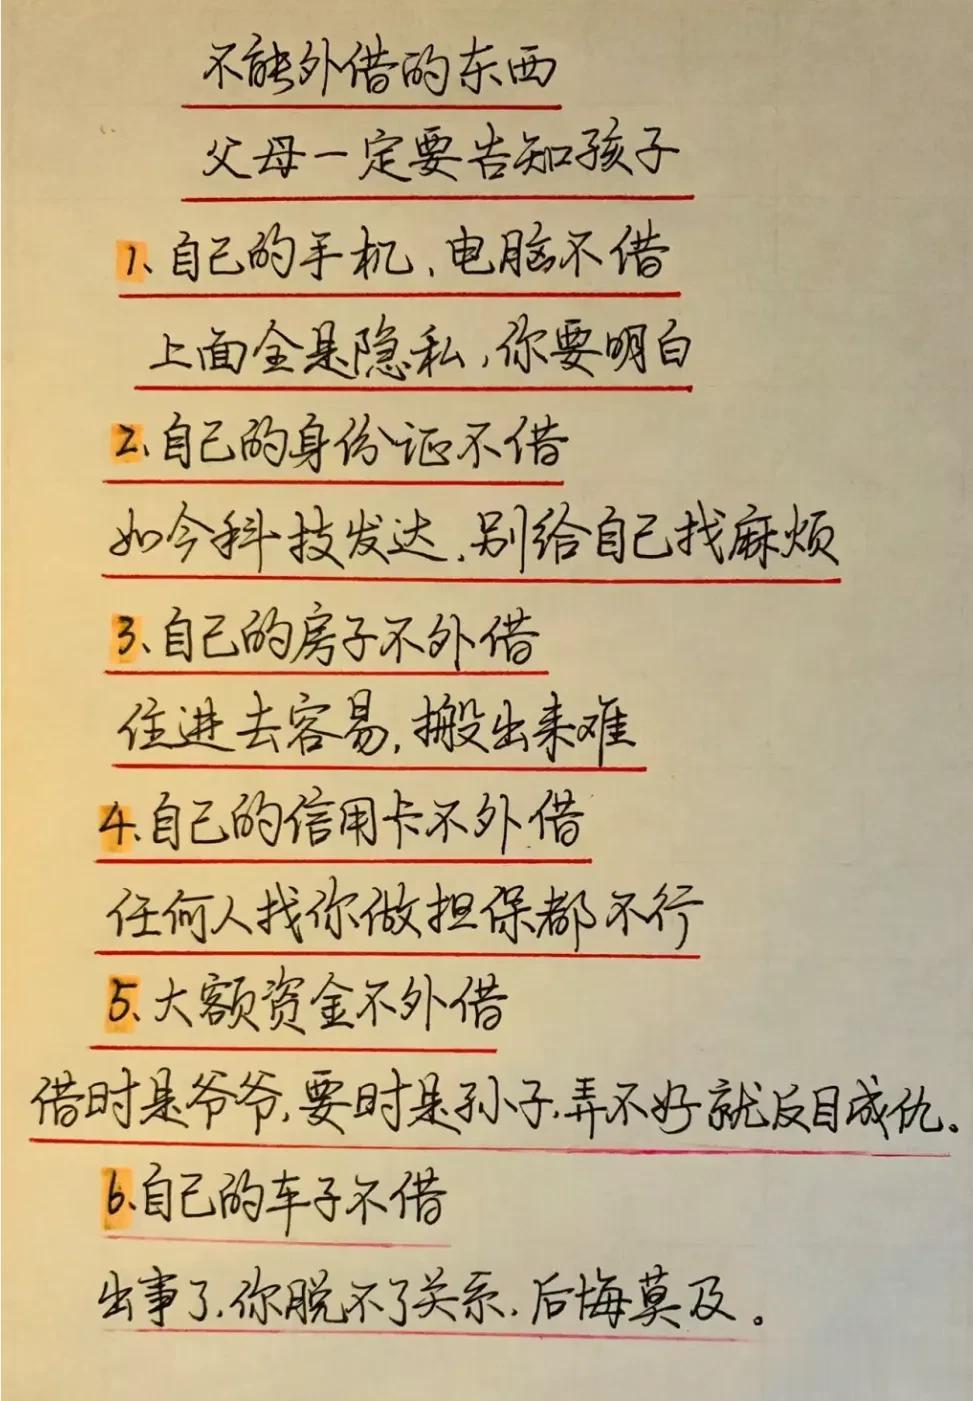 不能外借的东西
父母一定要告知孩子
1、自己的手机、电脑不借
上面全是隐私,你要明白
2、自己的身份证不借
如今科技发达,别给自己找麻烦
3、自己的房子不外借
住进去容易,搬出来难
4、自己的信用卡不外借
任何人找你做担保都不行
5、大额资金不外借
借时是爷爷,要时是孙子,弄不好就反目成仇。
6、自己的车子不借
出事了,你脱不了关系,后悔莫及。